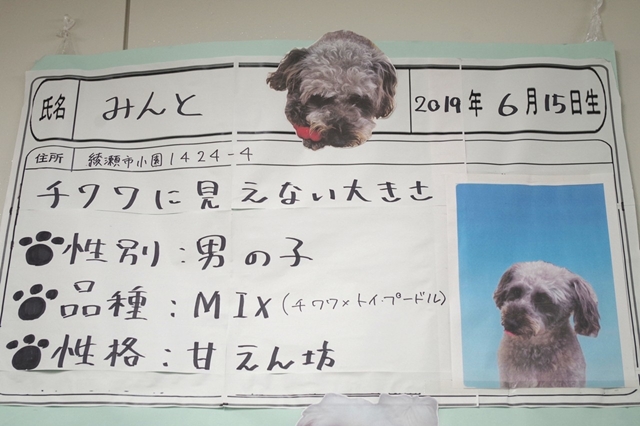 氏名 みんと 2019年 6月15日生
住所 綾瀬市小園1424-4
チワワに見えない大きさ
性別:男の子
品種:MIX(チワワ×トイ・プードル)
性格:甘えん坊